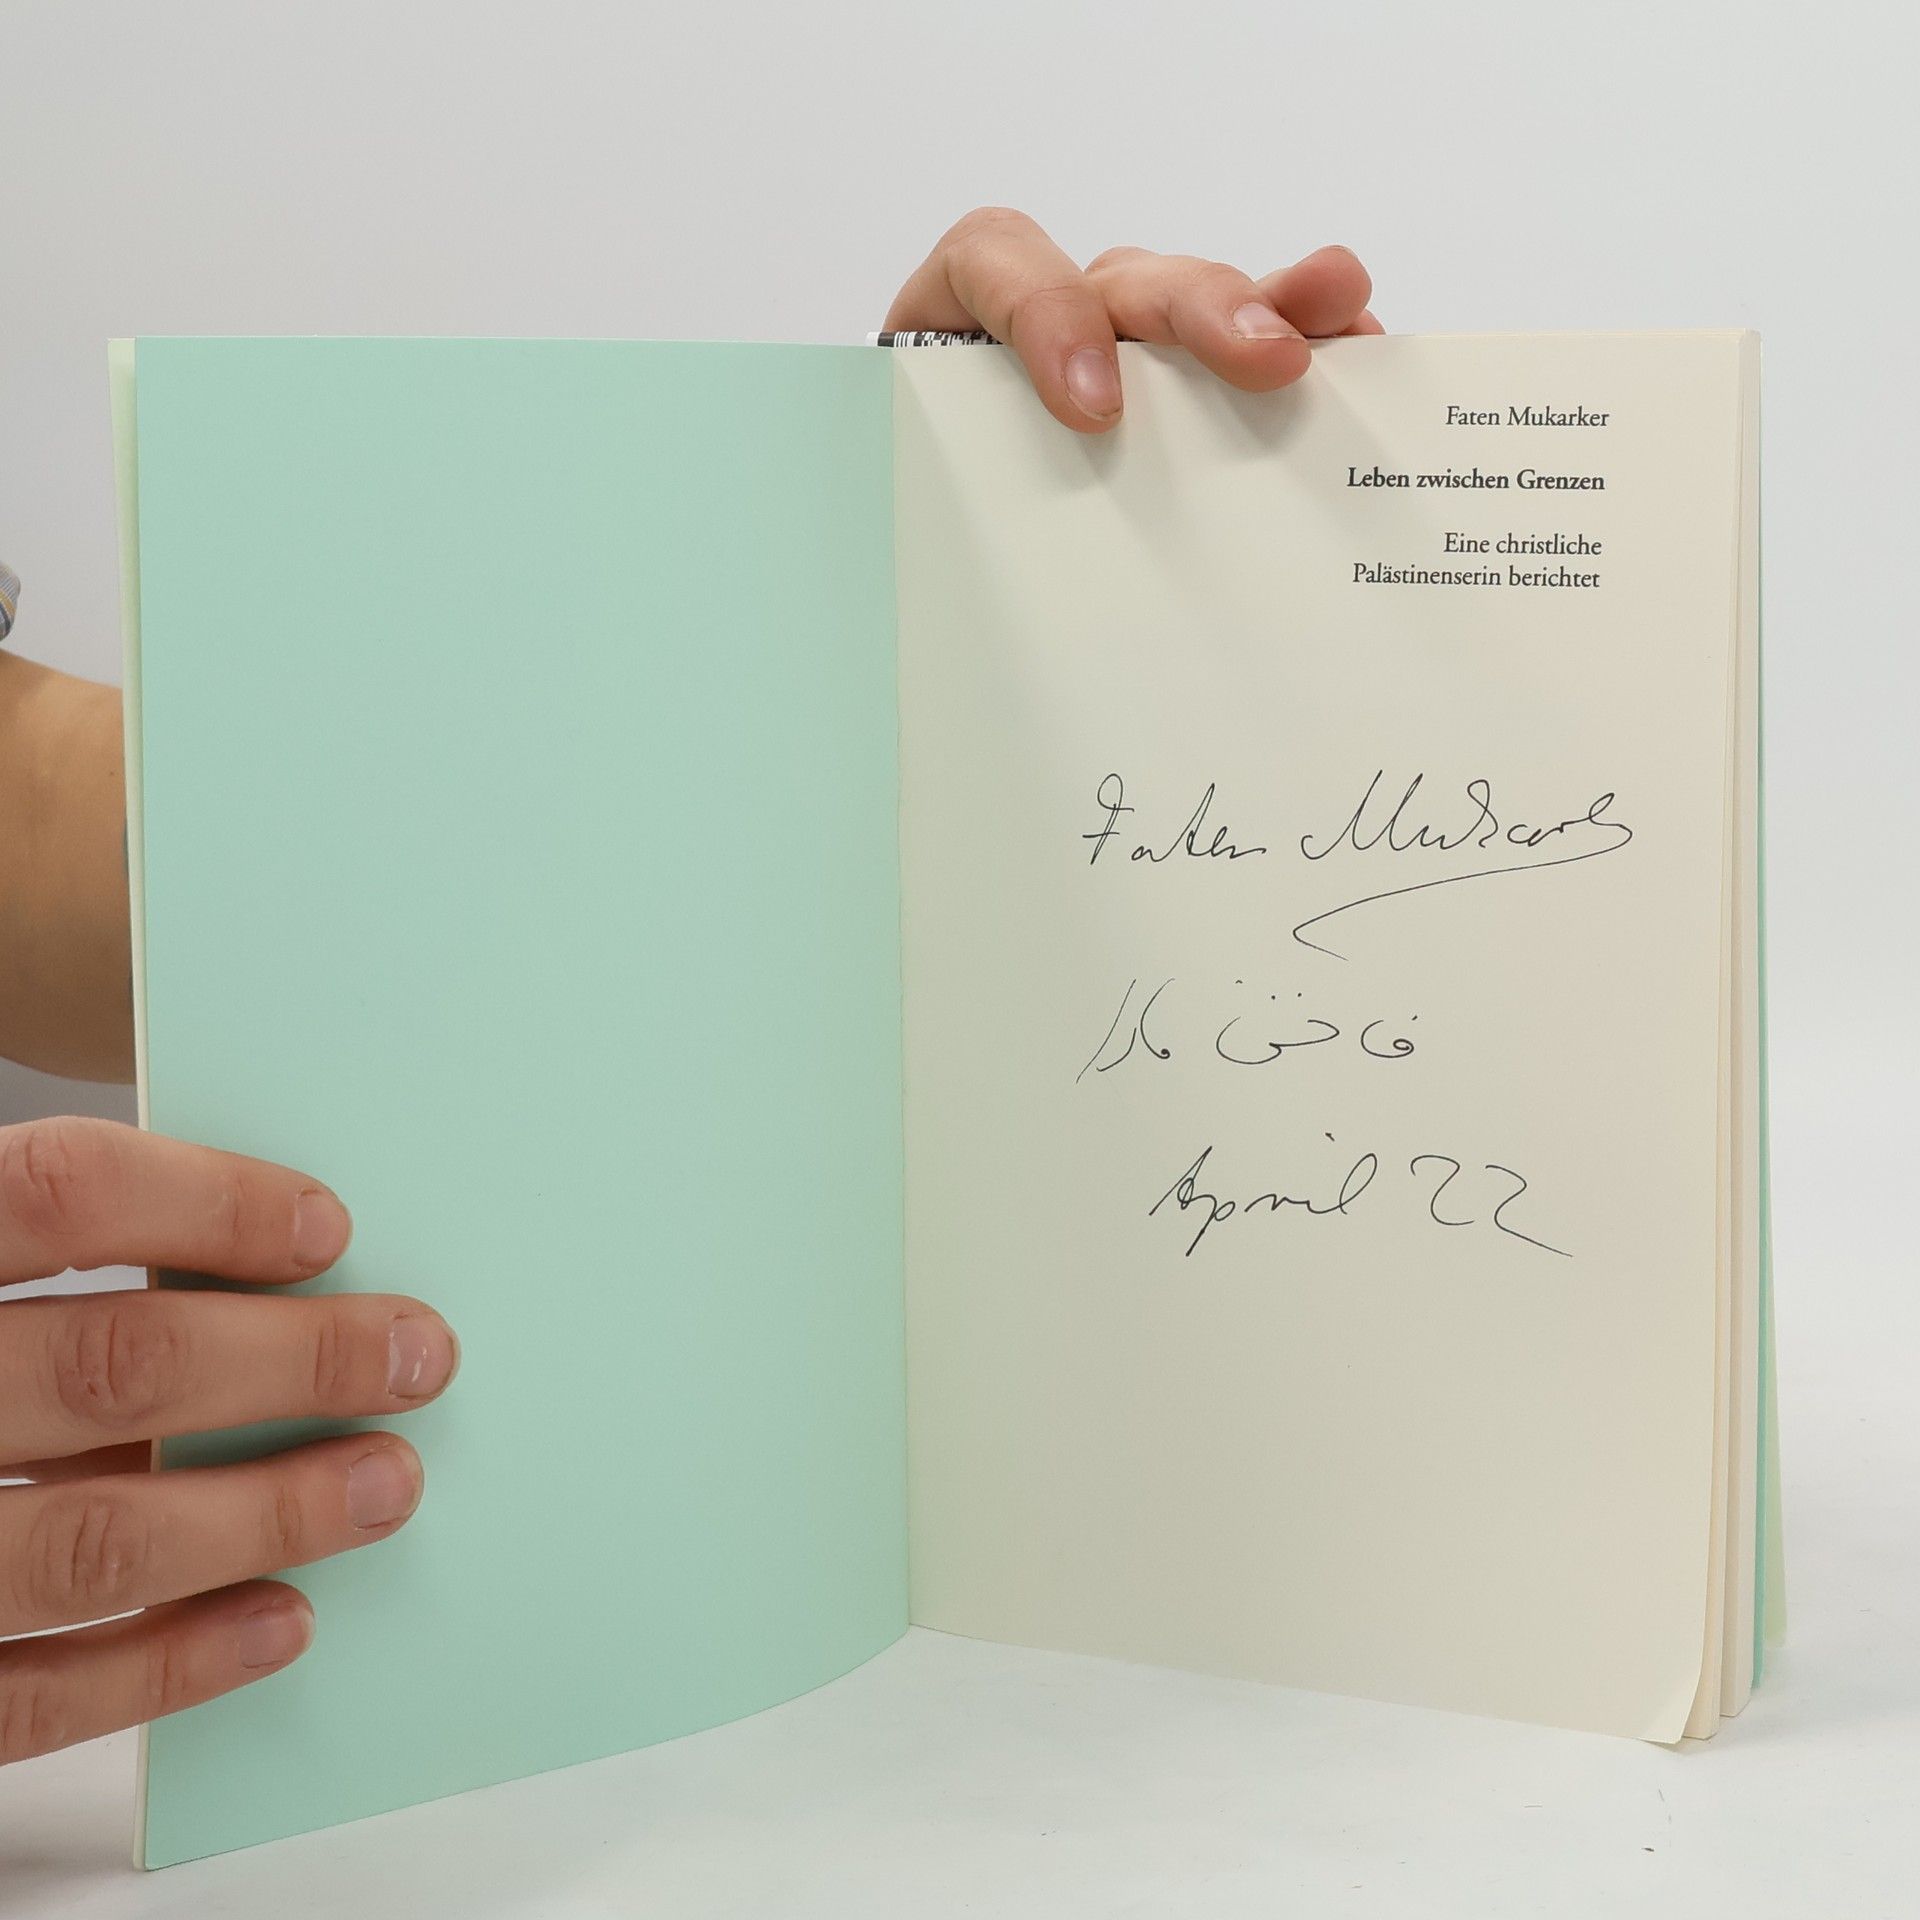 Faten Mukarker
Leben zwischen Grenzen
Eine christliche
Palästinenserin berichtet
Faten Mukarker
April 22